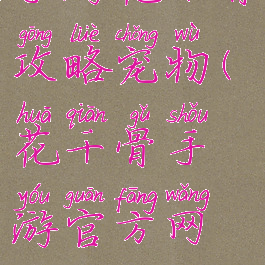 gōng lüè chǒng wù
攻略宠物(
huā qiān gǔ shǒu
花千骨手
yóu guān fāng wǎng
游官方网